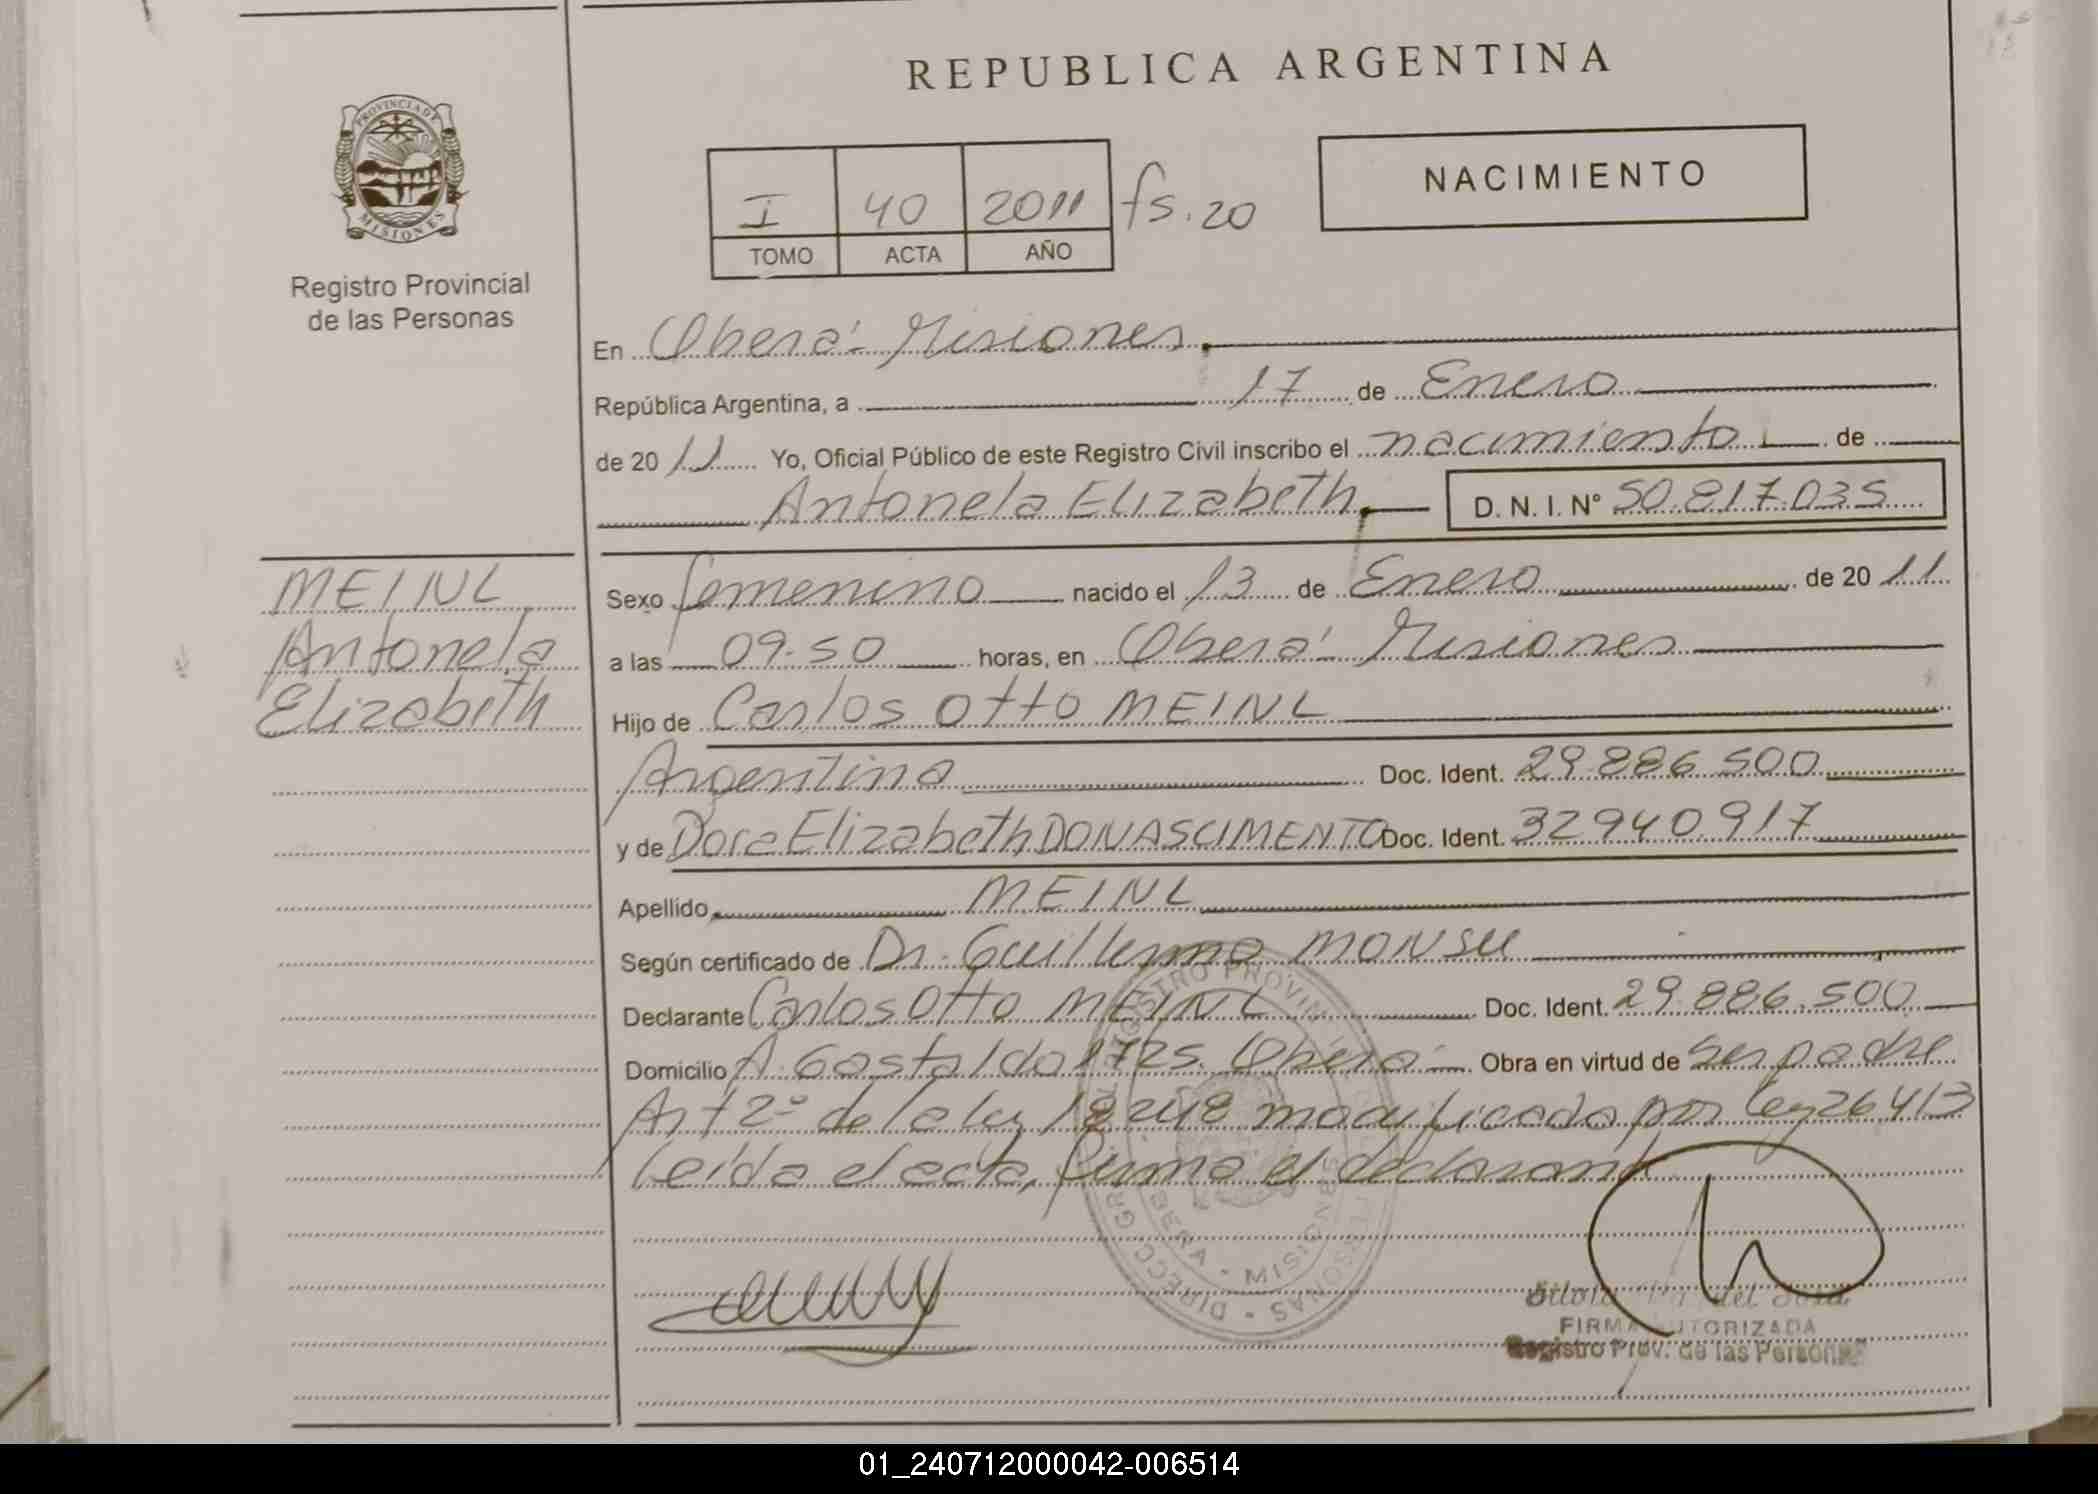 REPUBLICA ARGENTINA
PROVINCIA DE MISIONES
Registro Provincial
de las Personas
I 40 2011 fs. 20
TOMO ACTA AÑO
NACIMIENTO
En Oberá - Misiones.
República Argentina, a 17 de Enero
de 2011 Yo, Oficial Público de este Registro Civil inscribo el nacimiento de
Antonela Elizabeth. D. N. I. N° 50.817.035
MEINL
Antonela
Elizabeth
Sexo femenino nacido el 13 de Enero de 2011
a las 09.50 horas, en Oberá - Misiones
Hijo de Carlos Otto MEINL
Argentina Doc. Ident. 29.886.500
y de Dora Elizabeth DONASCIMENTO Doc. Ident. 32940.917
Apellido MEINL
Según certificado de Dr. Guillermo MONSU
Declarante Carlos Otto MEINL Doc. Ident. 29.886.500
Domicilio A. Gastaldo 1725. Oberá Obra en virtud de Ser padre
Art 2º de la ley 18248 modificada por ley 26413
Leída el acta, firma el declarante
OBERA - MISIONES
del Sosa
FIRMA AUTORIZADA
Registro Prov. de las Personas
01_240712000042-006514